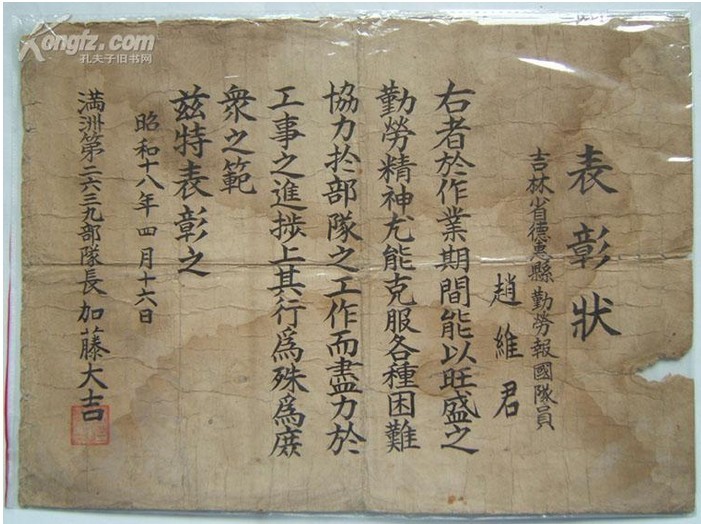 表彰狀
吉林省德惠縣勤勞報國隊員
趙維君
右者於作業期間能以旺盛之
勤勞精神尤能克服各種困難
協力於部隊之工作而盡力於
工事之進捗上其行爲殊爲庶
衆之範
茲特表彰之
昭和十八年四月十六日
満洲第二六三九部隊長加藤大吉
Kongfz.com
孔夫子旧书网